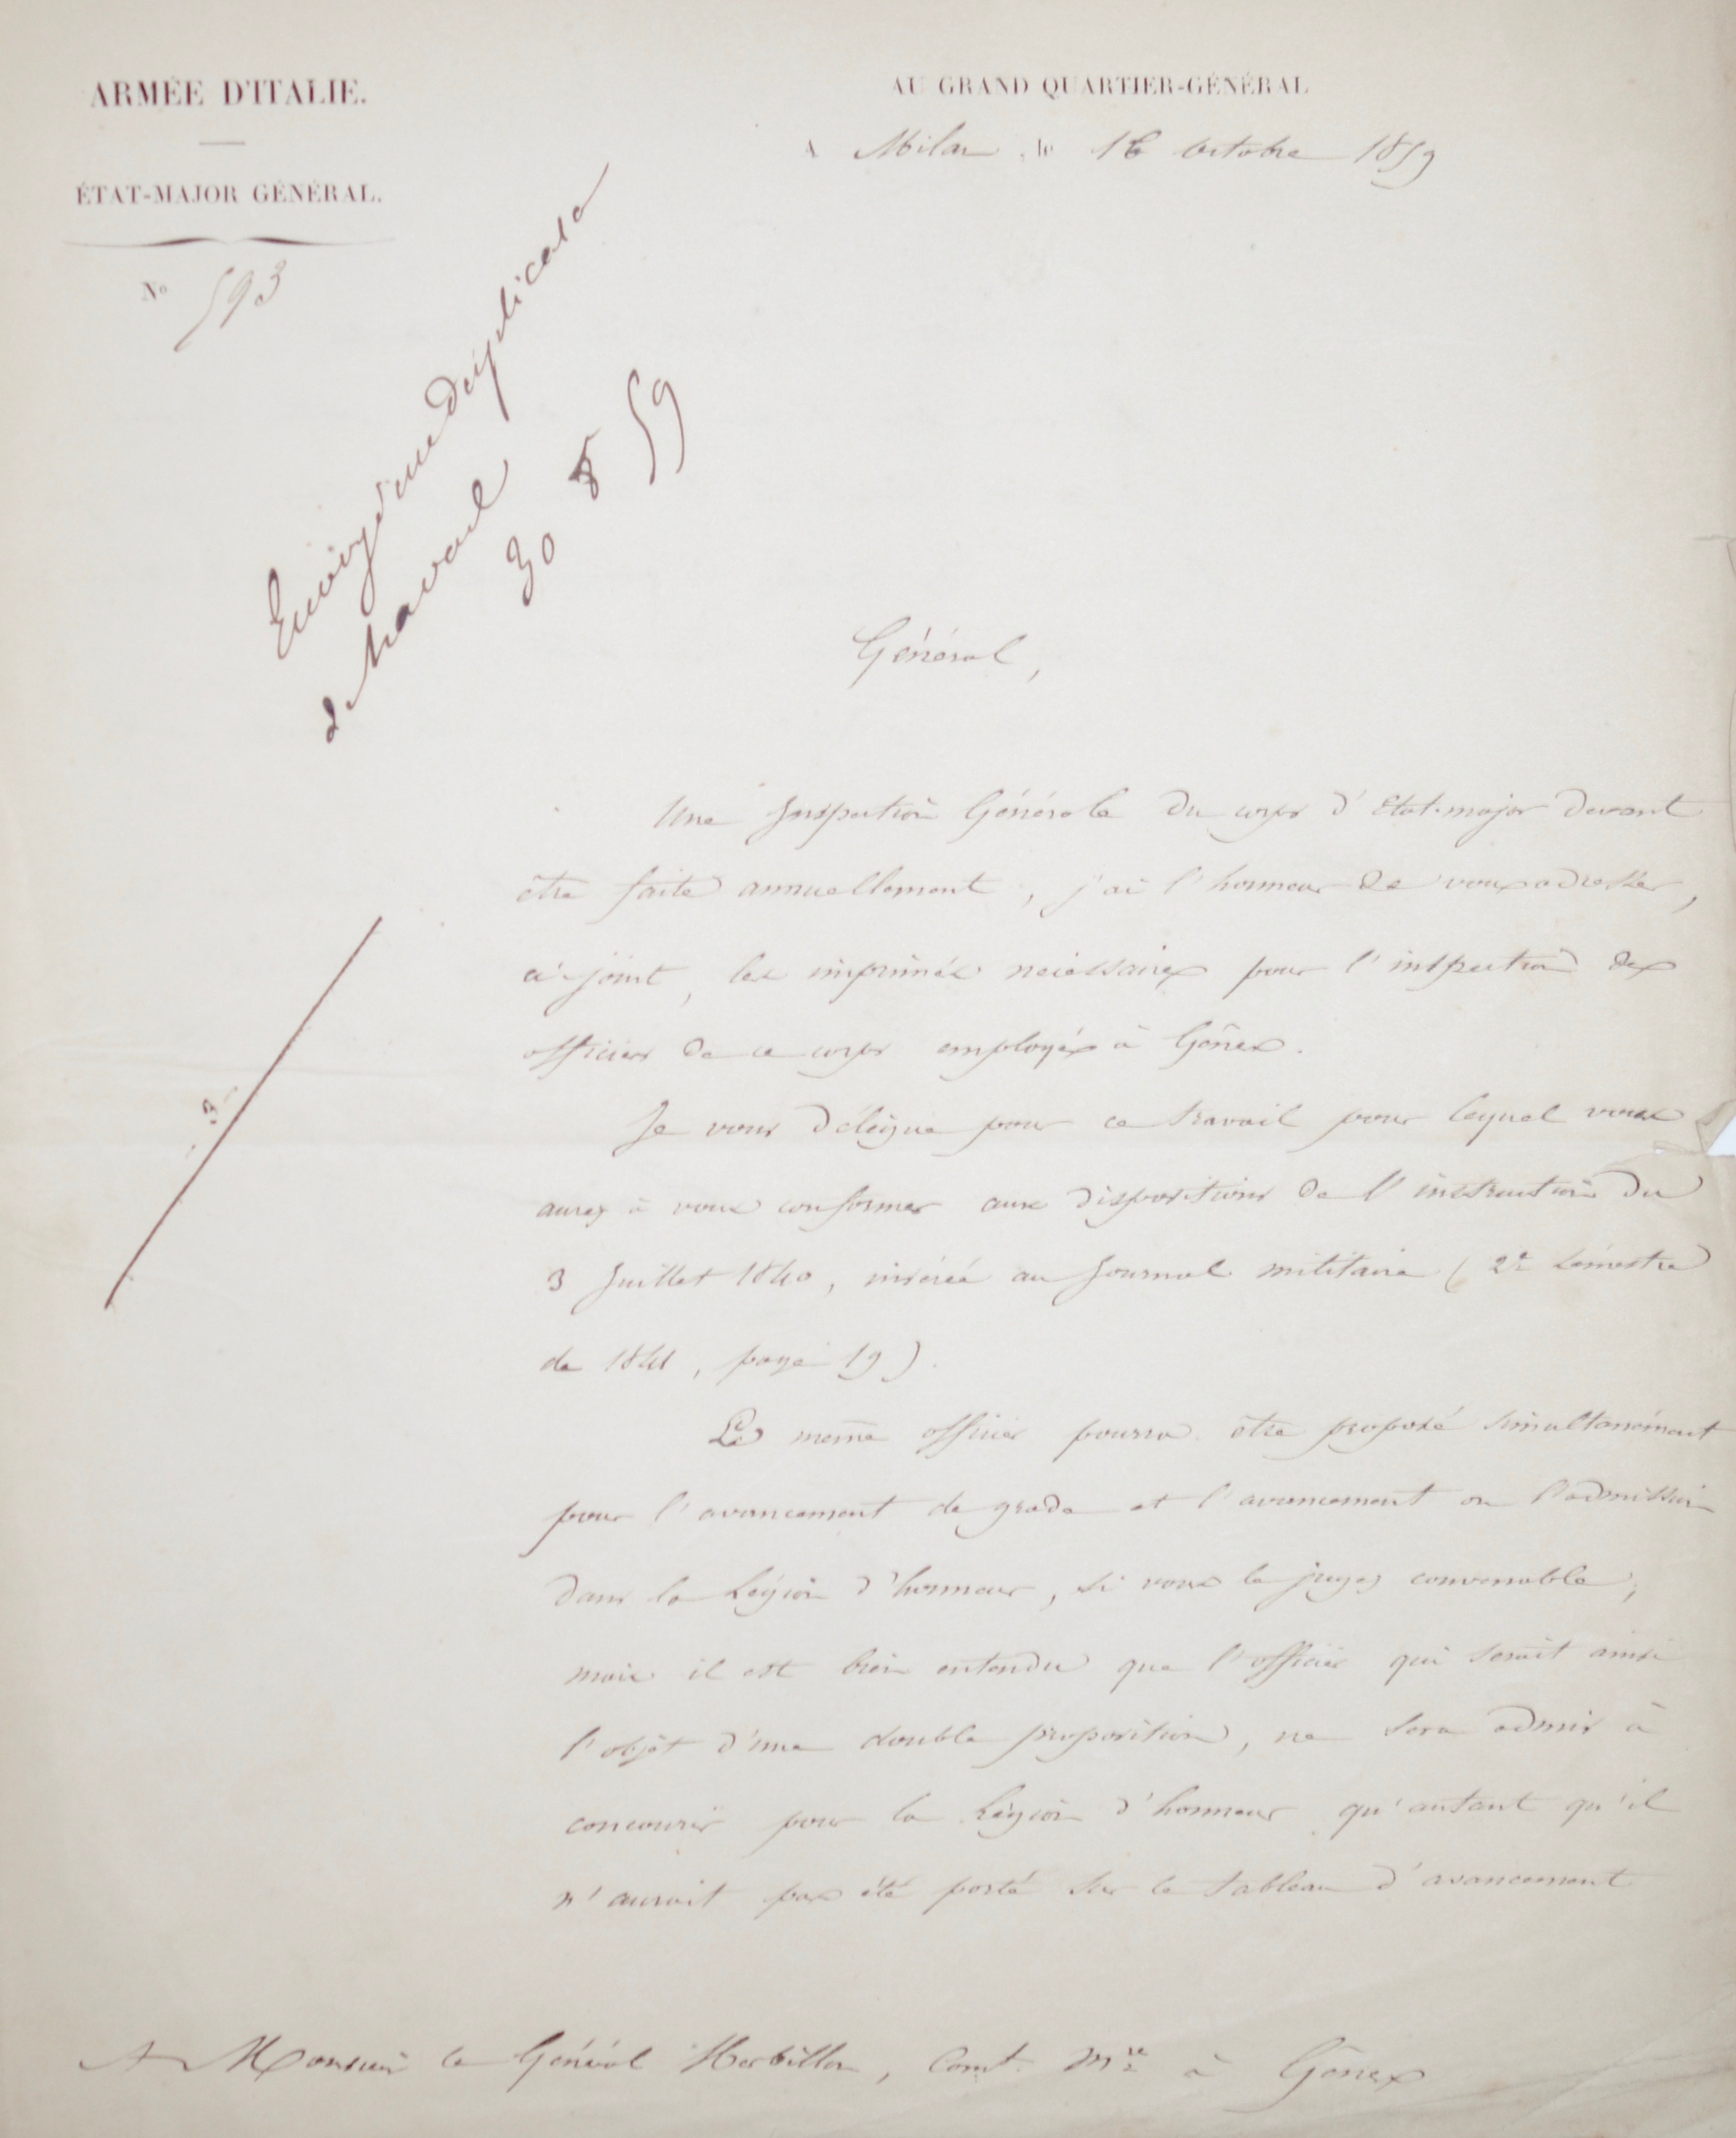 ARMÉE D'ITALIE.
ÉTAT-MAJOR GÉNÉRAL.
N° 593
AU GRAND QUARTIER-GÉNÉRAL
A Milan, le 16 octobre 1859
Envoyé une duplicata
de travail
30 8 59
Général,
Une Inspection Générale du corps d'Etat-major devant
être faite annuellement, j'ai l'honneur de vous adresser,
ci-joint, les imprimés nécessaires pour l'inspection des
officiers de ce corps employés à Gênes.
Je vous délègue pour ce travail pour lequel vous
aurez à vous conformer aux dispositions de l'instruction du
3 Juillet 1840, insérée au Journal militaire (2e Semestre
de 1841, page 19).
-3-
Le même officier pourra être proposé simultanément
pour l'avancement de grade et l'avancement ou l'admission
dans la Légion d'honneur, si vous le jugez convenable;
mais il est bien entendu que l'officier qui serait ainsi
l'objet d'une double proposition, ne sera admis à
concourir pour la Légion d'honneur qu'autant qu'il
n'aurait pas été porté sur le tableau d'avancement
A Monsieur le Général Herbillon, Comt. Mre à Gênes